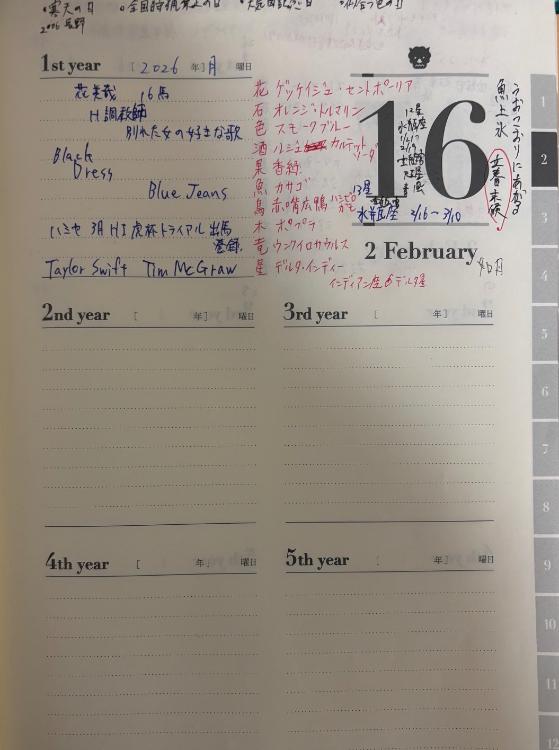 寒天の日
全国狩猟禁止の日
2006 長野
1st year [ 2026 年] 月 曜日
花美哉 16馬
H 調教師
別れた女の好きな歌
Black
Dress
Blue Jeans
ハミヤ 3月 HI 虎杯トライアル 出馬
登録
Taylor Swift Tim McGraw
花 ゲッケイジュ・セントポーリア
石 オレンジ・トルマリン
色 スモークブルー
酒 ルジェ カルテット ソーダ
果 香緑
魚 カサゴ
鳥 赤嘴広鴨 ハシビロガモ
木 ポプラ
竜 ウンクイロサウルス
星 デルタ・インディー
インディアン座δデルタ星
16
12星
水瓶座
13星
水瓶座 2/16〜3/10
うおこおりにあがる
魚上氷
土養末候
2 February
如月
2nd year [ 年] 曜日
3rd year [ 年] 曜日
4th year [ 年] 曜日
5th year [ 年] 曜日
1
2
3
4
5
6
7
8
9
10
11